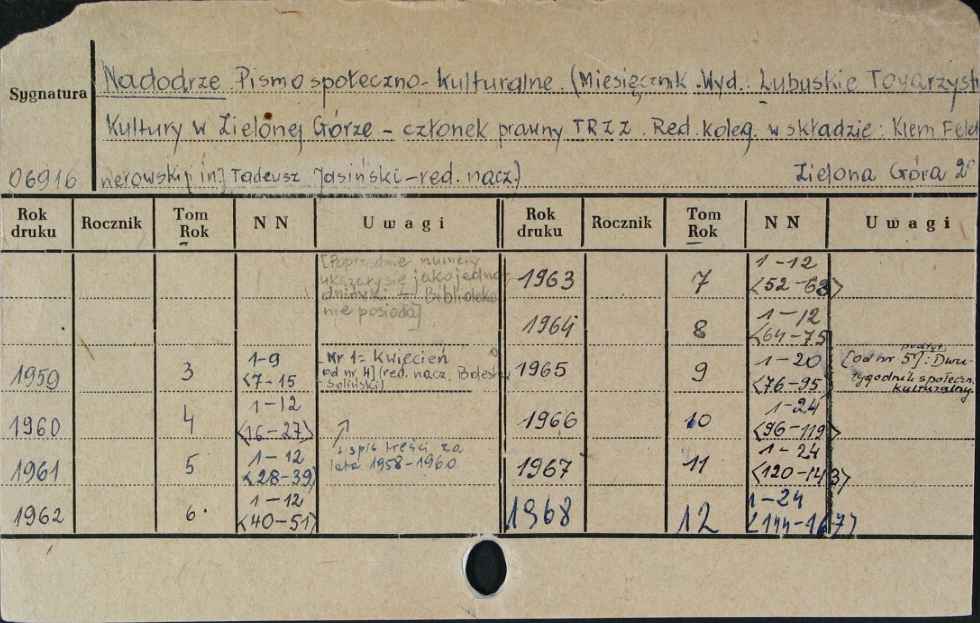 Nadodrze. Pismo społeczno-kulturalne. (Miesięcznik. Wyd.: Lubuskie Towarzyst
Sygnatura
Kultury w Zielonej Górze – członek prawny TRZZ. Red. koleg. w składzie: Klem Feld
06916 nerowski [i in.] Tadeusz Jasiński – red. nacz.) Zielona Góra 2°
Rok druku Rocznik Tom Rok NN Uwagi Rok druku Rocznik Tom Rok NN Uwagi
[Poprzednie numery
ukazały się jako jedno-
dniówki Biblioteka
nie posiada]
1963 7 1–12 <52–63>
1964 8 1–12 <64–75
1959 3 1-9 <7–15 Nr 1= Kwiecień
od nr 4] (red. nacz. Bolesław
Soliński]
1965 9 1–20 <76–95 [od nr 5]: Dwu
tygodnik społeczn.
kulturalny
1960 4 1–12 <16–27>
1966 10 1–24 <96–119>
+ spis treści za
lata 1958–1960
1961 5 1–12 <28–39>
1967 11 1–24 <120–143>
1962 6. 1–12 <40–51>
1968 12 1–24 <144–167>